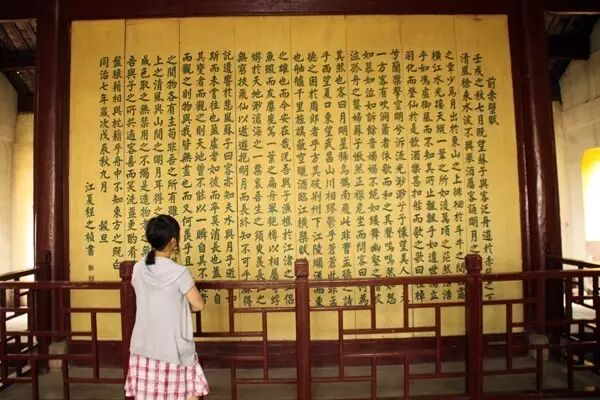 前赤壁賦
壬戌之秋七月既望蘇子與客泛舟遊於赤壁之下
清風徐來水波不興舉酒屬客誦明月之詩歌窈窕
之章少焉月出於東山之上徘徊於斗牛之間白露
橫江水光接天縱一葦之所如凌萬頃之茫然浩浩
乎如馮虛御風而不知其所止飄飄乎如遺世獨立
羽化而登仙於是飲酒樂甚扣舷而歌之歌曰桂棹
兮蘭槳擊空明兮泝流光渺渺兮予懷望美人兮天
一方客有吹洞簫者倚歌而和之其聲嗚嗚然如怨
如慕如泣如訴餘音嫋嫋不絕如縷舞幽壑之潛蛟
泣孤舟之嫠婦蘇子愀然正襟危坐而問客曰何為
其然也客曰月明星稀烏鵲南飛此非曹孟德之詩
乎西望夏口東望武昌山川相繆鬱乎蒼蒼此非孟
德之困於周郎者乎方其破荊州下江陵順流而東
也舳艫千里旌旗蔽空釃酒臨江橫槊賦詩固一世
之雄也而今安在哉況吾與子漁樵於江渚之上侶
魚蝦而友麋鹿駕一葉之扁舟舉匏樽以相屬寄蜉
蝣於天地渺滄海之一粟哀吾生之須臾羨長江之
無窮挾飛仙以遨遊抱明月而長終知不可乎驟得
託遺響於悲風蘇子曰客亦知夫水與月乎逝者如
斯而未嘗往也盈虛者如彼而卒莫消長也蓋將自
其變者而觀之則天地曾不能以一瞬自其不變者
而觀之則物與我皆無盡也而又何羨乎且夫天地
之間物各有主苟非吾之所有雖
上之清風與山間之明月耳得之
成色取之無禁用之不竭是造物
吾與子之所共適客喜而笑洗盞更酌肴
盤狼藉相與枕藉乎舟中不知東方之既白
同治七年歲次戊辰秋九月 穀旦
江夏程之楨書